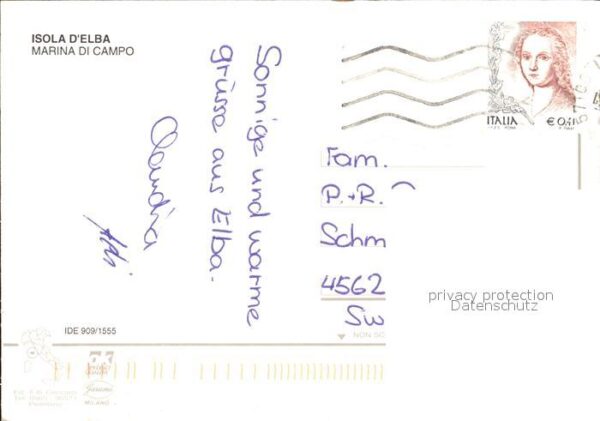 ISOLA D'ELBA
MARINA DI CAMPO
Sonnige und warme
grüsse aus Elba.
Claudia
ITALIA
€ 0,41
Fam.
P.+R.
Schm
4562
Sw
privacy protection
Datenschutz
IDE 909/1555
NON SC
MILANO